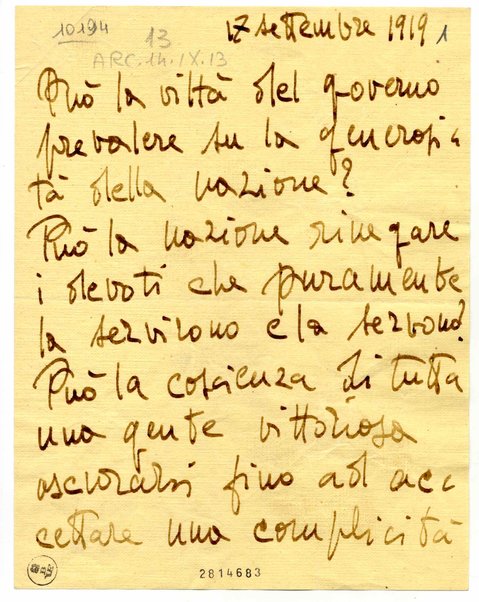 10194
17 settembre 1919 1
13
ARC.14.IX.13
Può la viltà del governo
prevalere su la generosi-
tà della nazione?
Può la nazione rinegare
i devoti che puramente
la servirono e la servono?
Può la coscienza di tutta
una gente vittoriosa
oscurarsi fino ad acc
cettare una complicità
2814683